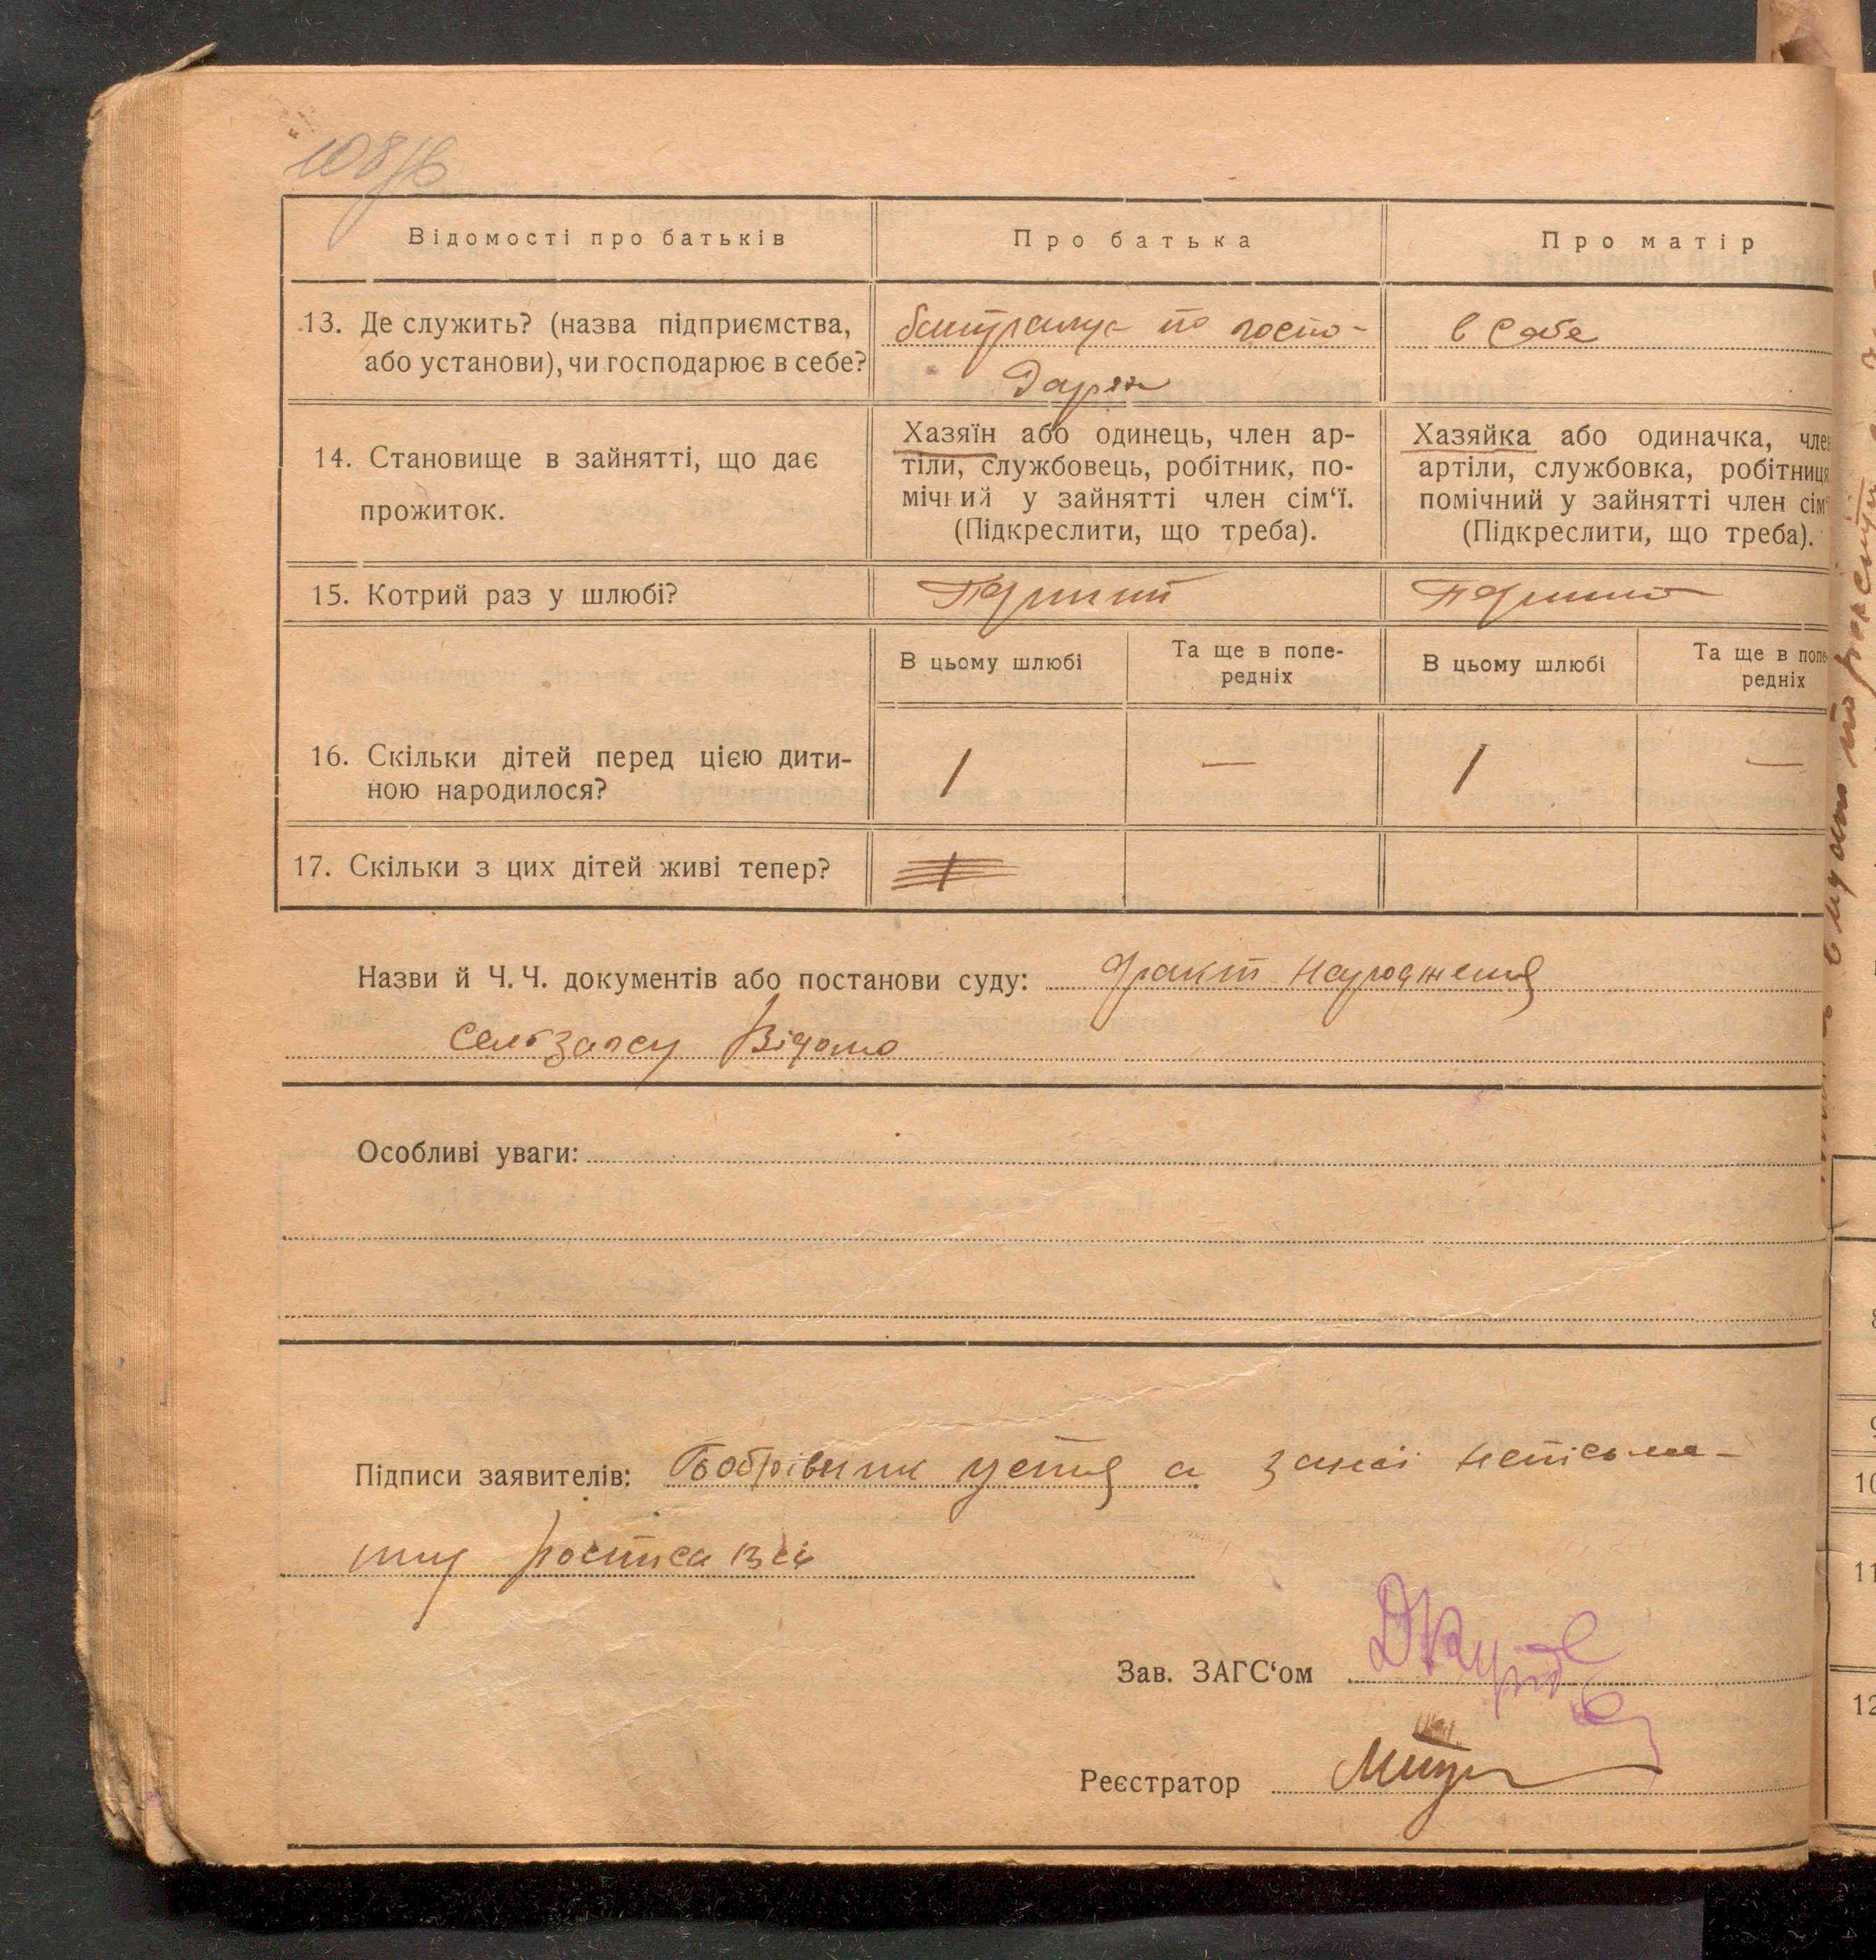 108/зв
Відомості про батьків
Про батька
Про матір
13. Де служить? (назва підприємства,
або установи), чи господарює в себе?
по госпо-
дарях
в себе
14. Становище в зайнятті, що дає
прожиток.
Хазяїн або одинець, член ар-
тіли, службовець, робітник, по-
мічний у зайнятті член сім‘ї.
(Підкреслити, що треба).
Хазяйка або одиначка, член
артіли, службовка, робітниця
помічний у зайнятті член сім‘
(Підкреслити, що треба).
15. Котрий раз у шлюбі?
Перший
Перший
В цьому шлюбі
Та ще в попе-
редніх
В цьому шлюбі
Та ще в попе-
редніх
16. Скільки дітей перед цією дити-
ною народилося?
1
—
1
—
17. Скільки з цих дітей живі тепер?
Назви й Ч. Ч. документів або постанови суду: факт народження
сельзагсу відомо
Особливі уваги:
Підписи заявителів: Бобрівник Устя а за неї неписьме-
ну росписався
Зав. ЗАГС‘ом
Реєстратор
8
9
10
11
12